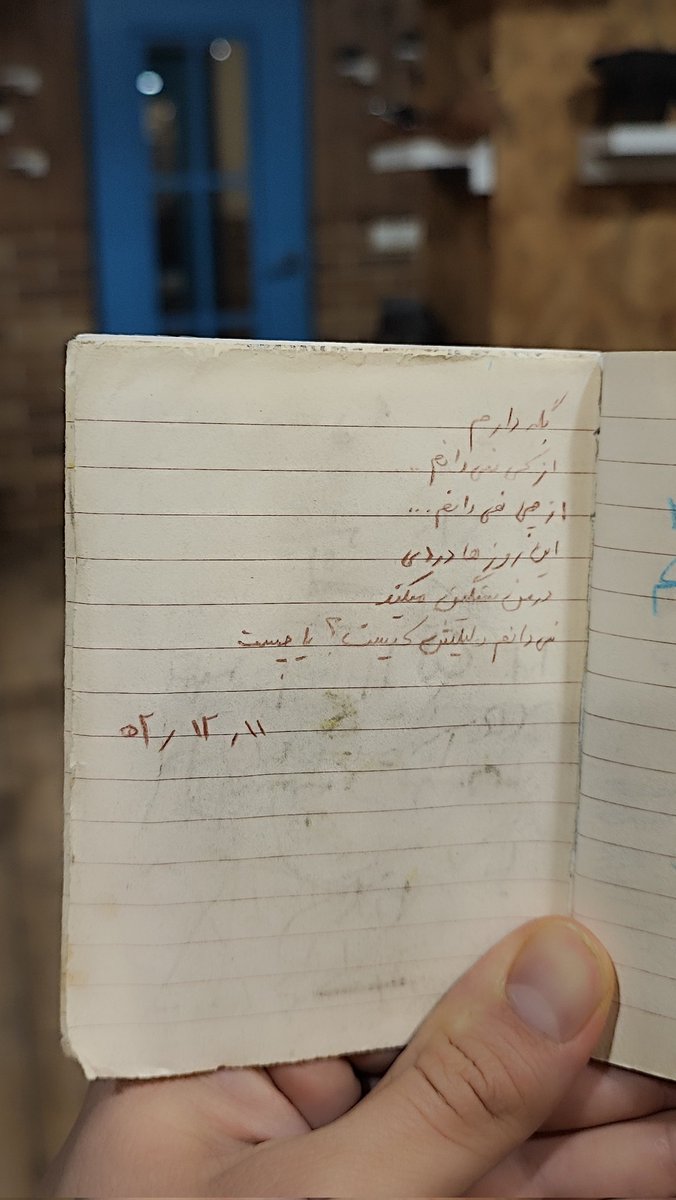 گله دارم
از کی نمی دانم..
از چی نمی دانم...
این روز ها دردی
درمن سنگینی میکند
نمی دانم دلیلش کیست؟ یا چیست
۰۲ / ۱۲ / ۱۱